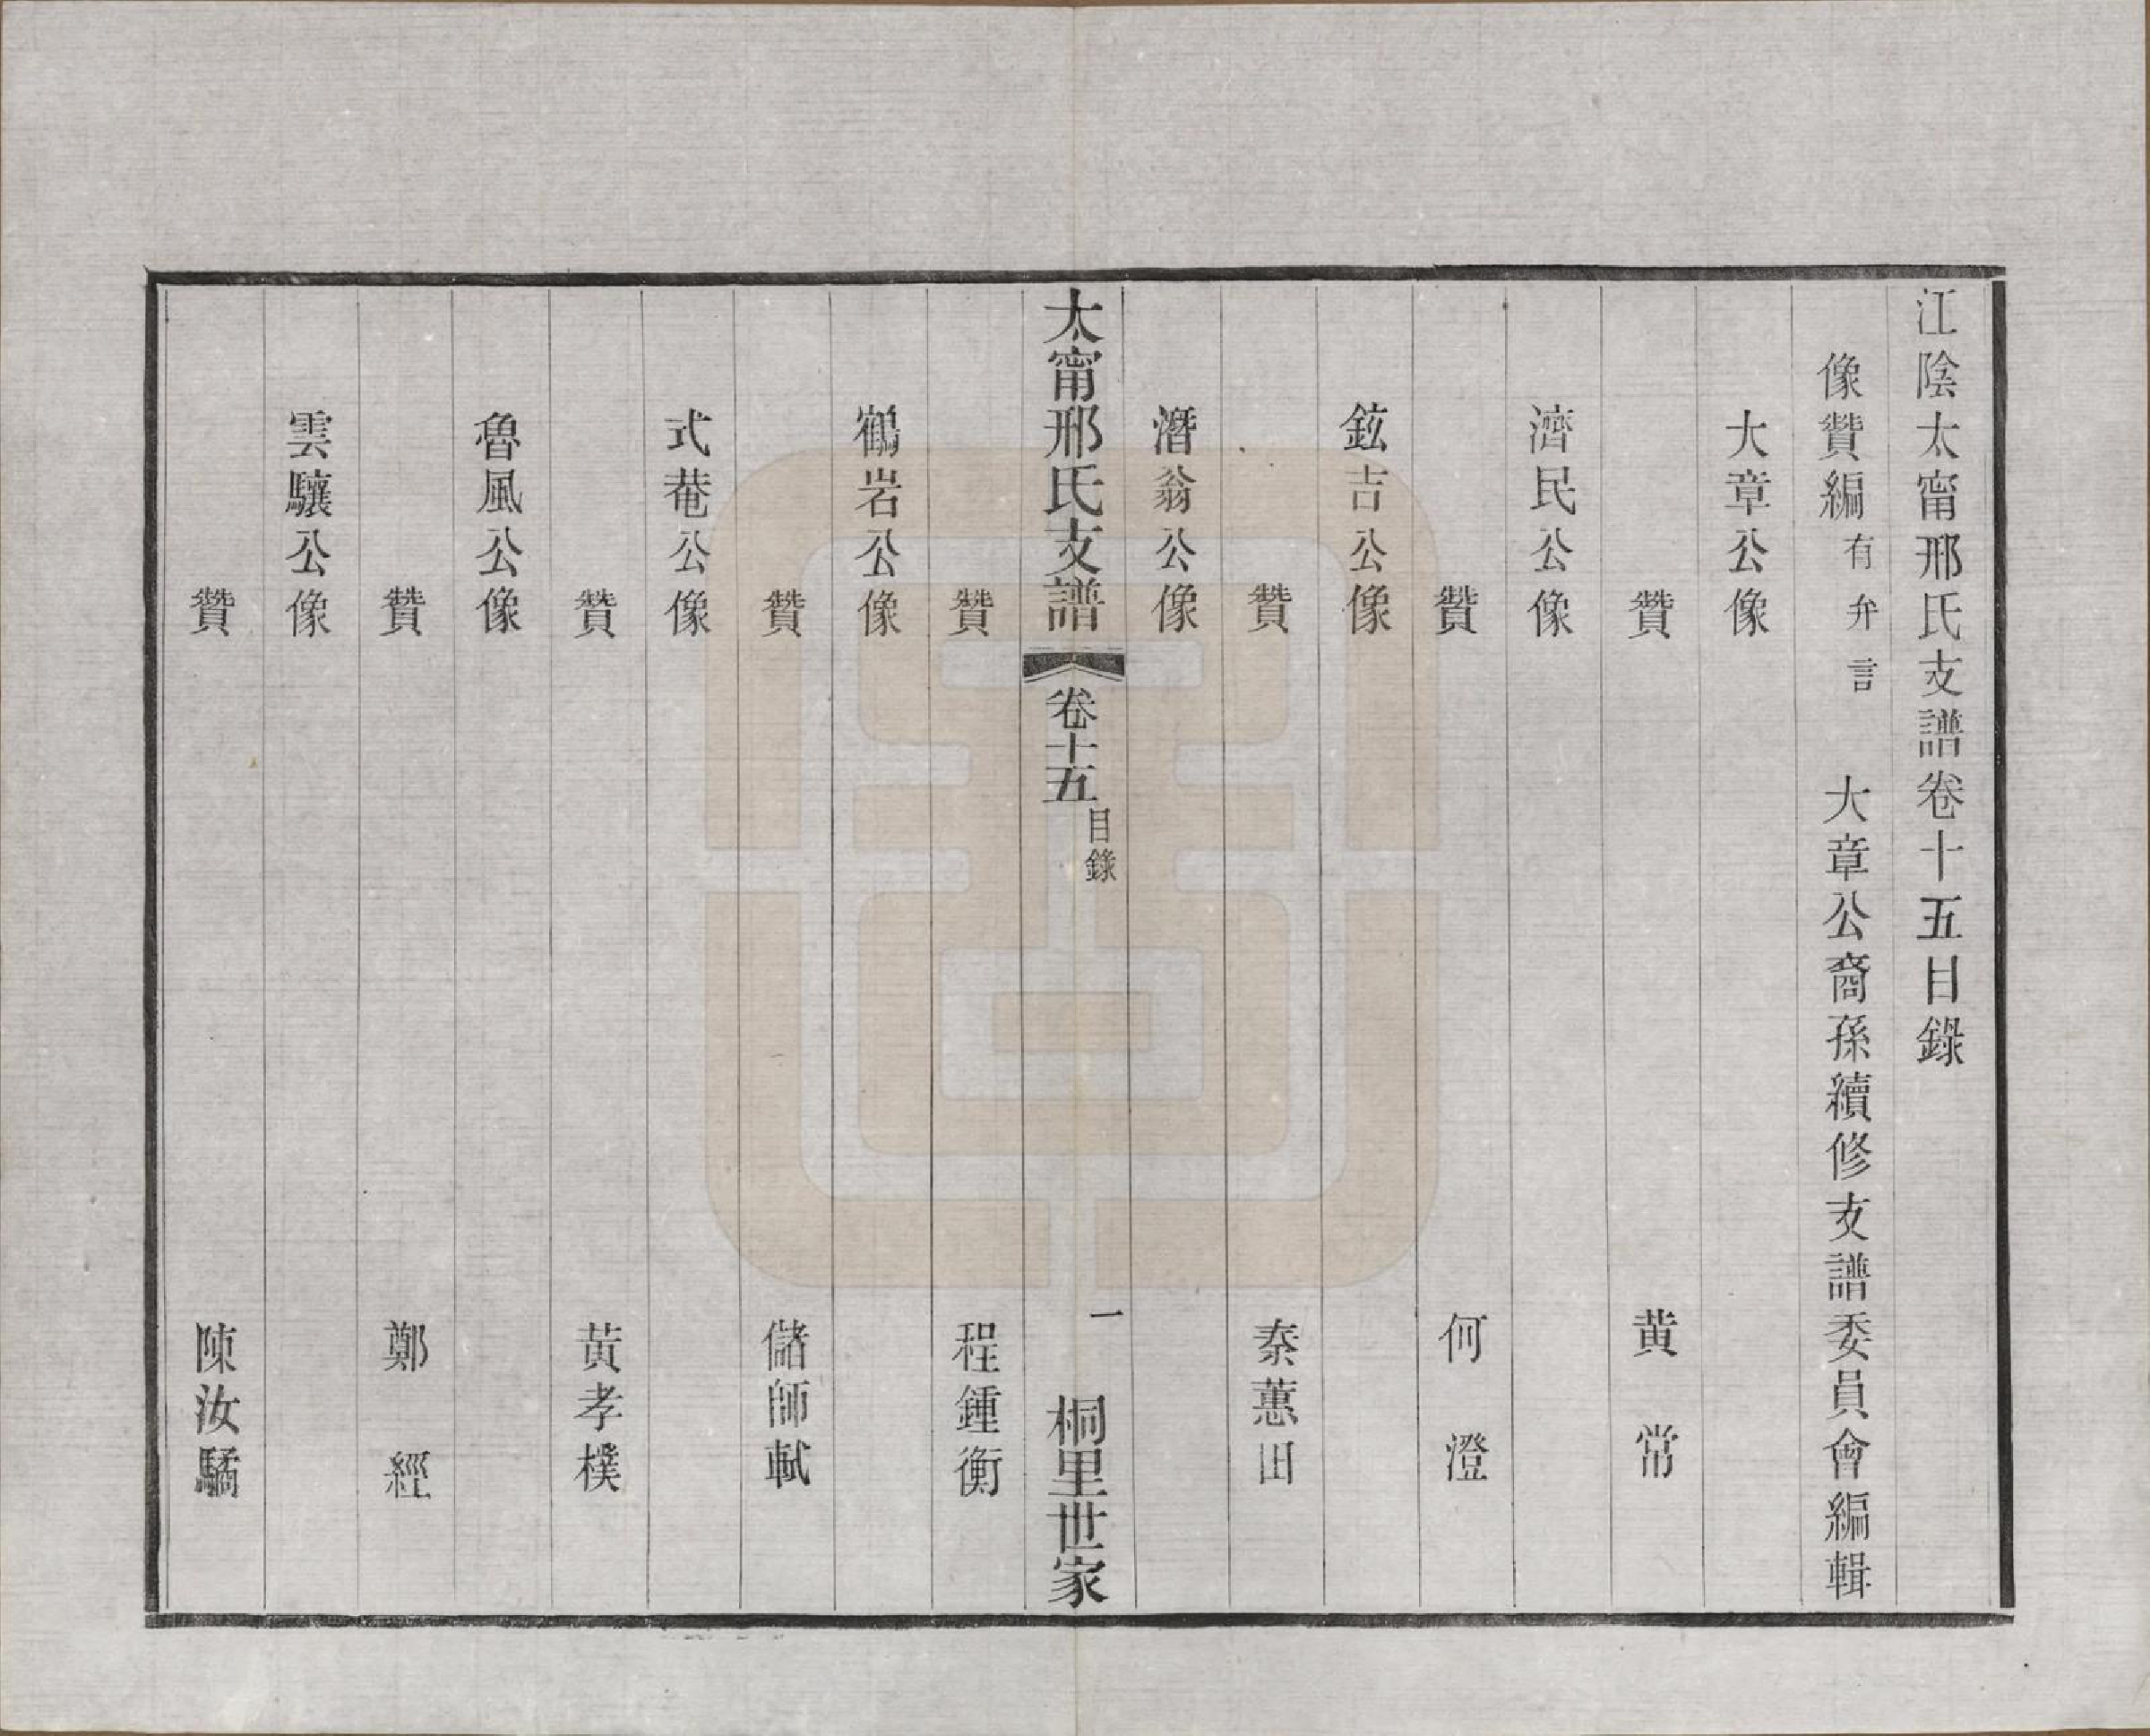 江陰太甯邢氏支譜卷十五目錄
像贊編有弁言　大章公裔孫續修支譜委員會編輯
大章公像
贊　黃常
濟民公像
贊　何澄
鉉吉公像
贊　秦蕙田
潛翁公像
太甯邢氏支譜　卷十五　目錄　一　桐里世家
贊　程鍾衡
鶴岩公像
贊　儲師軾
式菴公像
贊　黃孝樸
魯風公像
贊　鄭經
雲驤公像
贊　陳汝驕